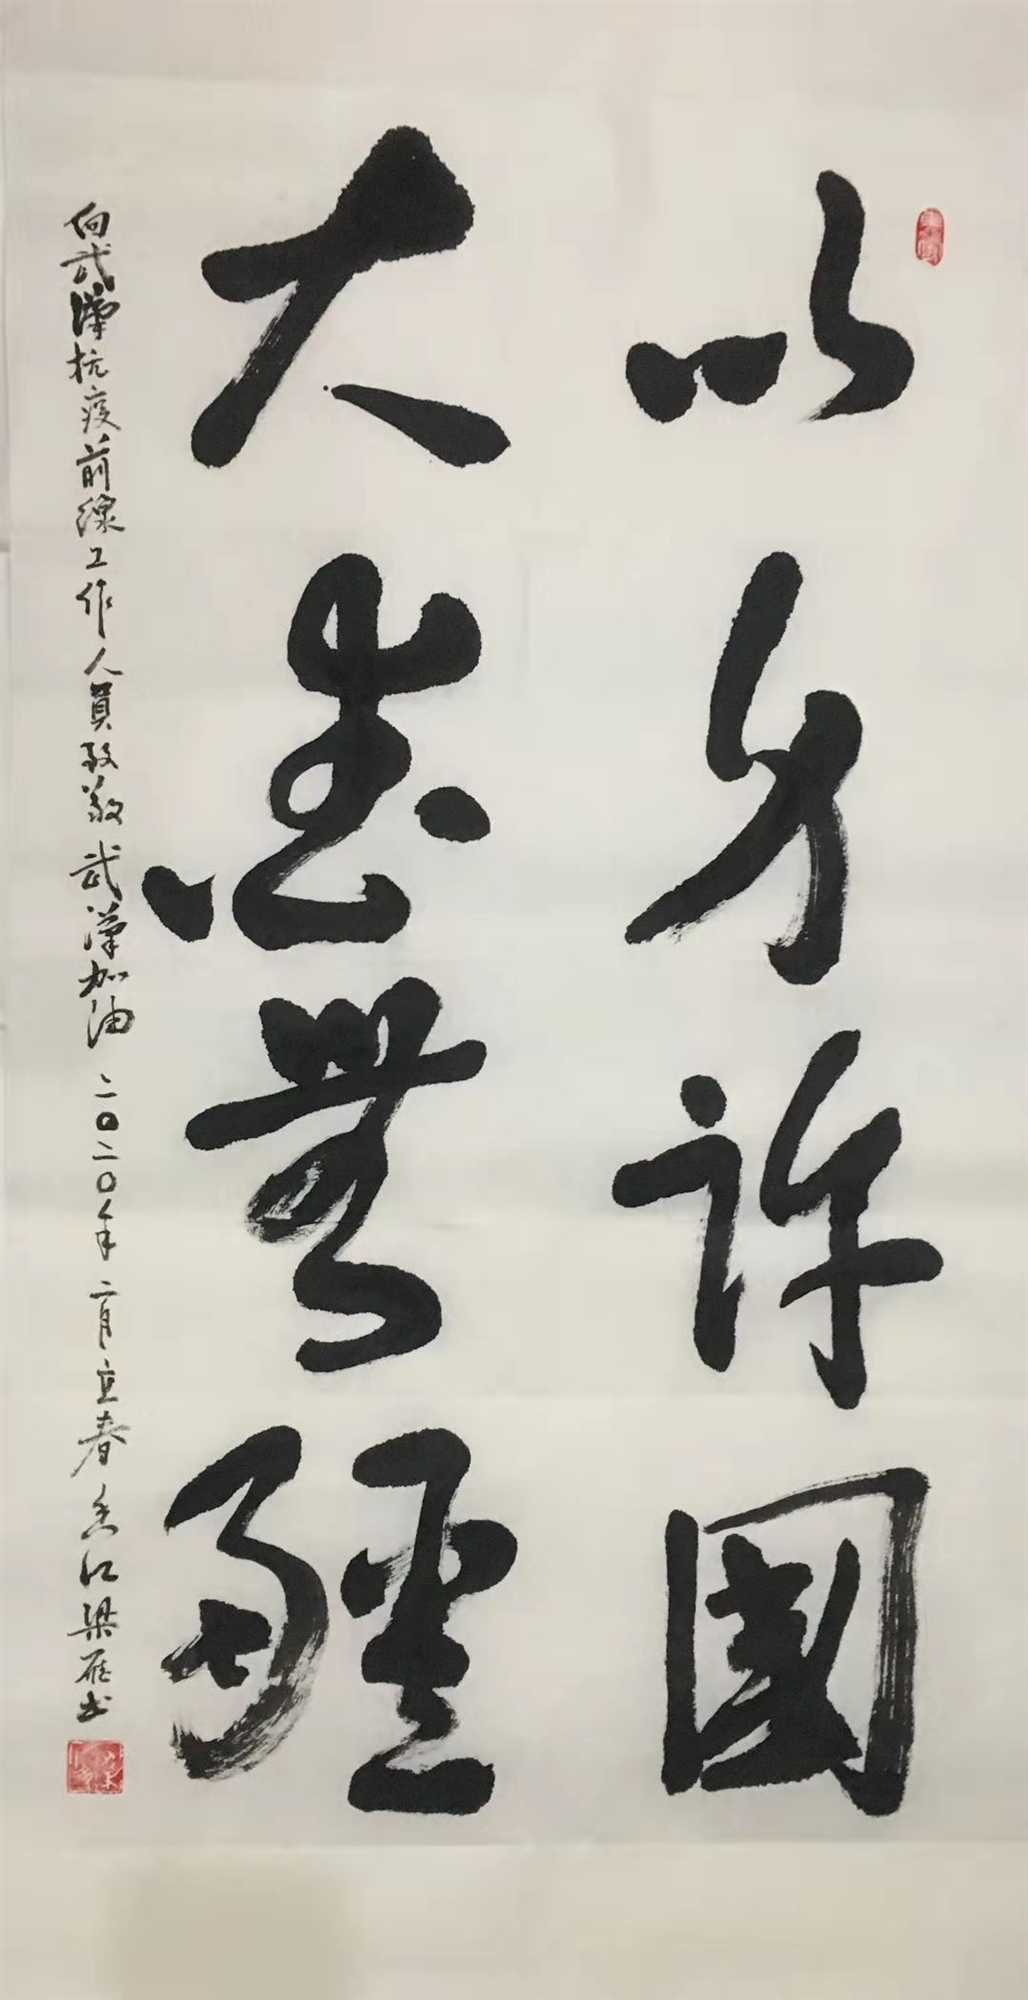 以身許國
大愛無疆
向武漢抗疫前線工作人員致敬武漢加油二〇二〇年二月立春香江梁雁书